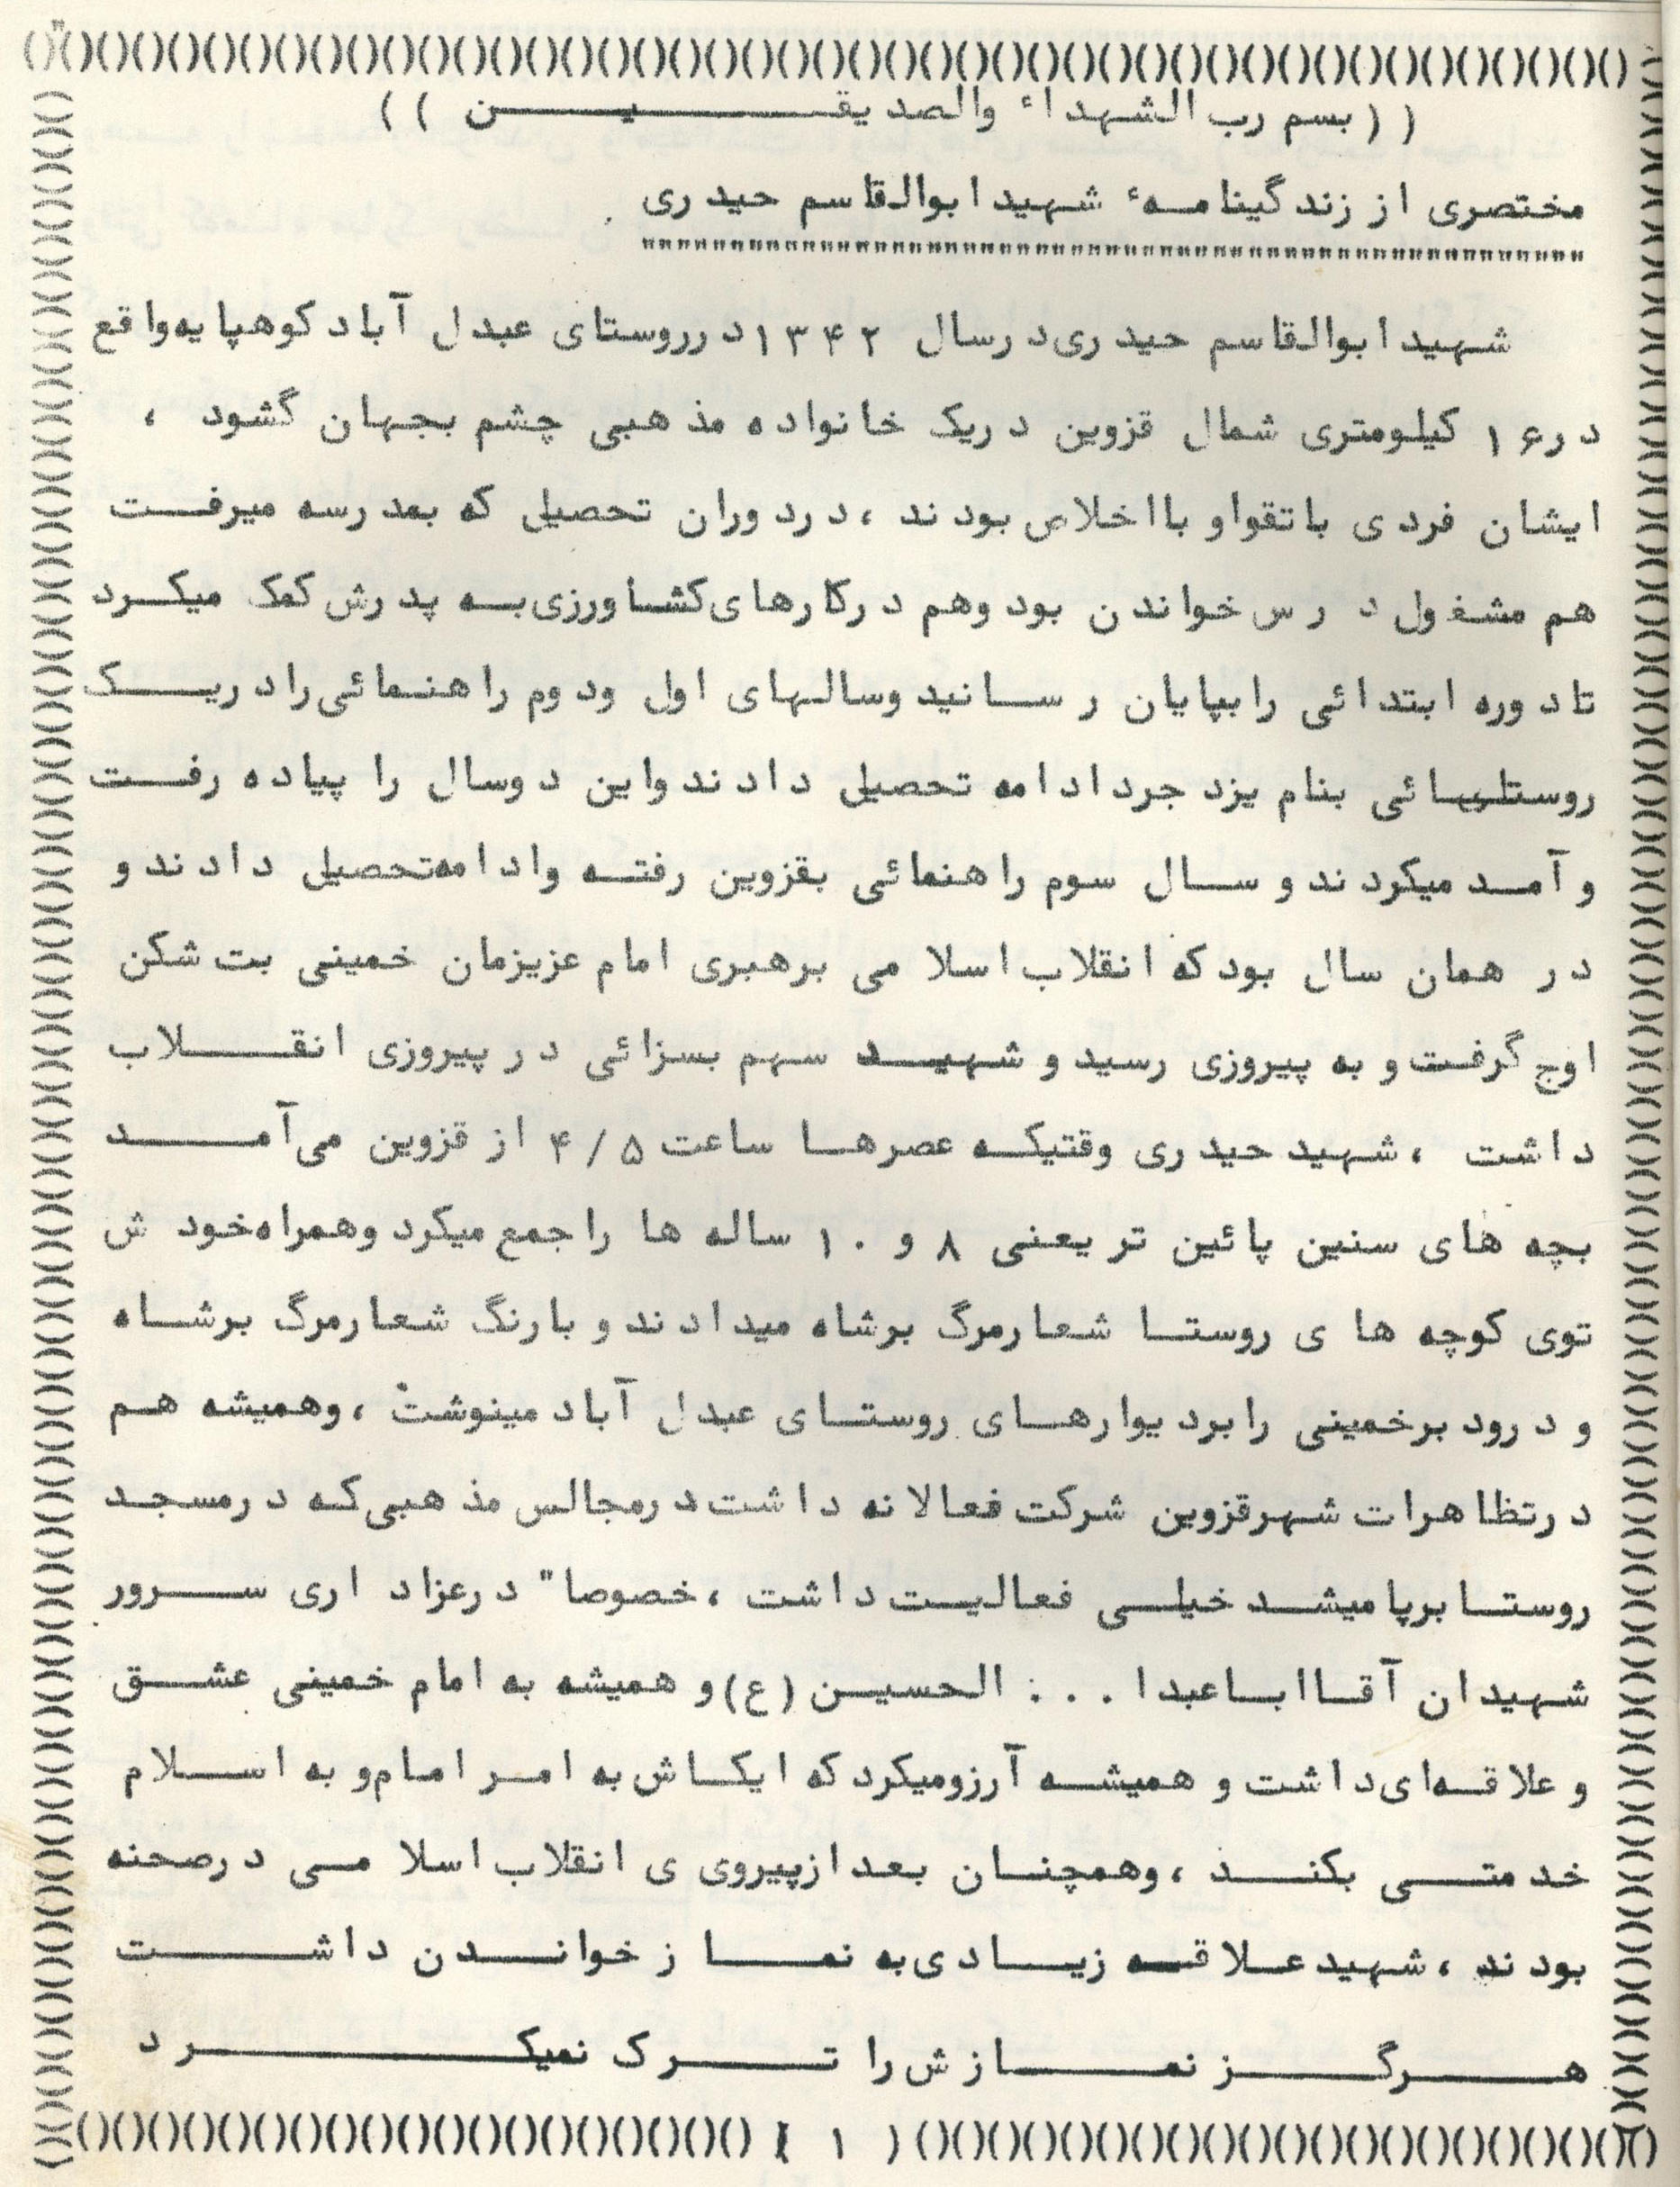 ((بسم رب الشهداء والصدیقین))
مختصری از زندگینامهء شهید ابوالقاسم حیدری
شهید ابوالقاسم حیدری در سال ۱۳۴۲ در روستای عبدل آباد کوهپایه واقع
در ۱۶ کیلومتری شمال قزوین دریک خانواده مذهبی چشم بجهان گشود ،
ایشان فردی باتقوا و بااخلاص بودند ، در دوران تحصیل که بمدرسه میرفت
هم مشغول درس خواندن بود وهم درکارهای کشاورزی به پدرش کمک میکرد
تا دوره ابتدائی را بپایان رسانید وسالهای اول ودوم راهنمائی را دریک
روستایهائی بنام یزدجرد ادامه تحصیل دادند واین دوسال را پیاده رفت
و آمد میکردند و سال سوم راهنمائی بقزوین رفته وادامه تحصیل دادند و
در همان سال بود که انقلاب اسلامی برهبری امام عزیزمان خمینی بت شکن
اوج گرفت و به پیروزی رسید و شهید سهم بسزائی در پیروزی انقلاب
داشت ، شهید حیدری وقتیکه عصرها ساعت ۴/۵ از قزوین می آمد
بچه های سنین پائین تر یعنی ۸ و ۱۰ ساله ها را جمع میکرد وهمراه خودش
توی کوچه های روستا شعار مرگ برشاه میدادند و بارنگ شعار مرگ برشاه
و درود برخمینی را بر دیوارهای روستای عبدل آباد مینوشت ، وهمیشه هم
درتظاهرات شهرقزوین شرکت فعالانه داشت درمجالس مذهبی که درمسجد
روستا برپا میشد خیلی فعالیت داشت ، خصوصا" درعزاداری سرور
شهیدان آقا اباعبدا... الحسین (ع) و همیشه به امام خمینی عشق
و علاقه ای داشت و همیشه آرزو میکرد که ایکاش به امر امام و به اسلام
خدمتی بکند ، وهمچنان بعد از پیروی ی انقلاب اسلامی درصحنه
بودند ، شهید علاقه زیادی به نماز خواندن داشت
هرگز نمازش را ترک نمیکرد
( ۱ )